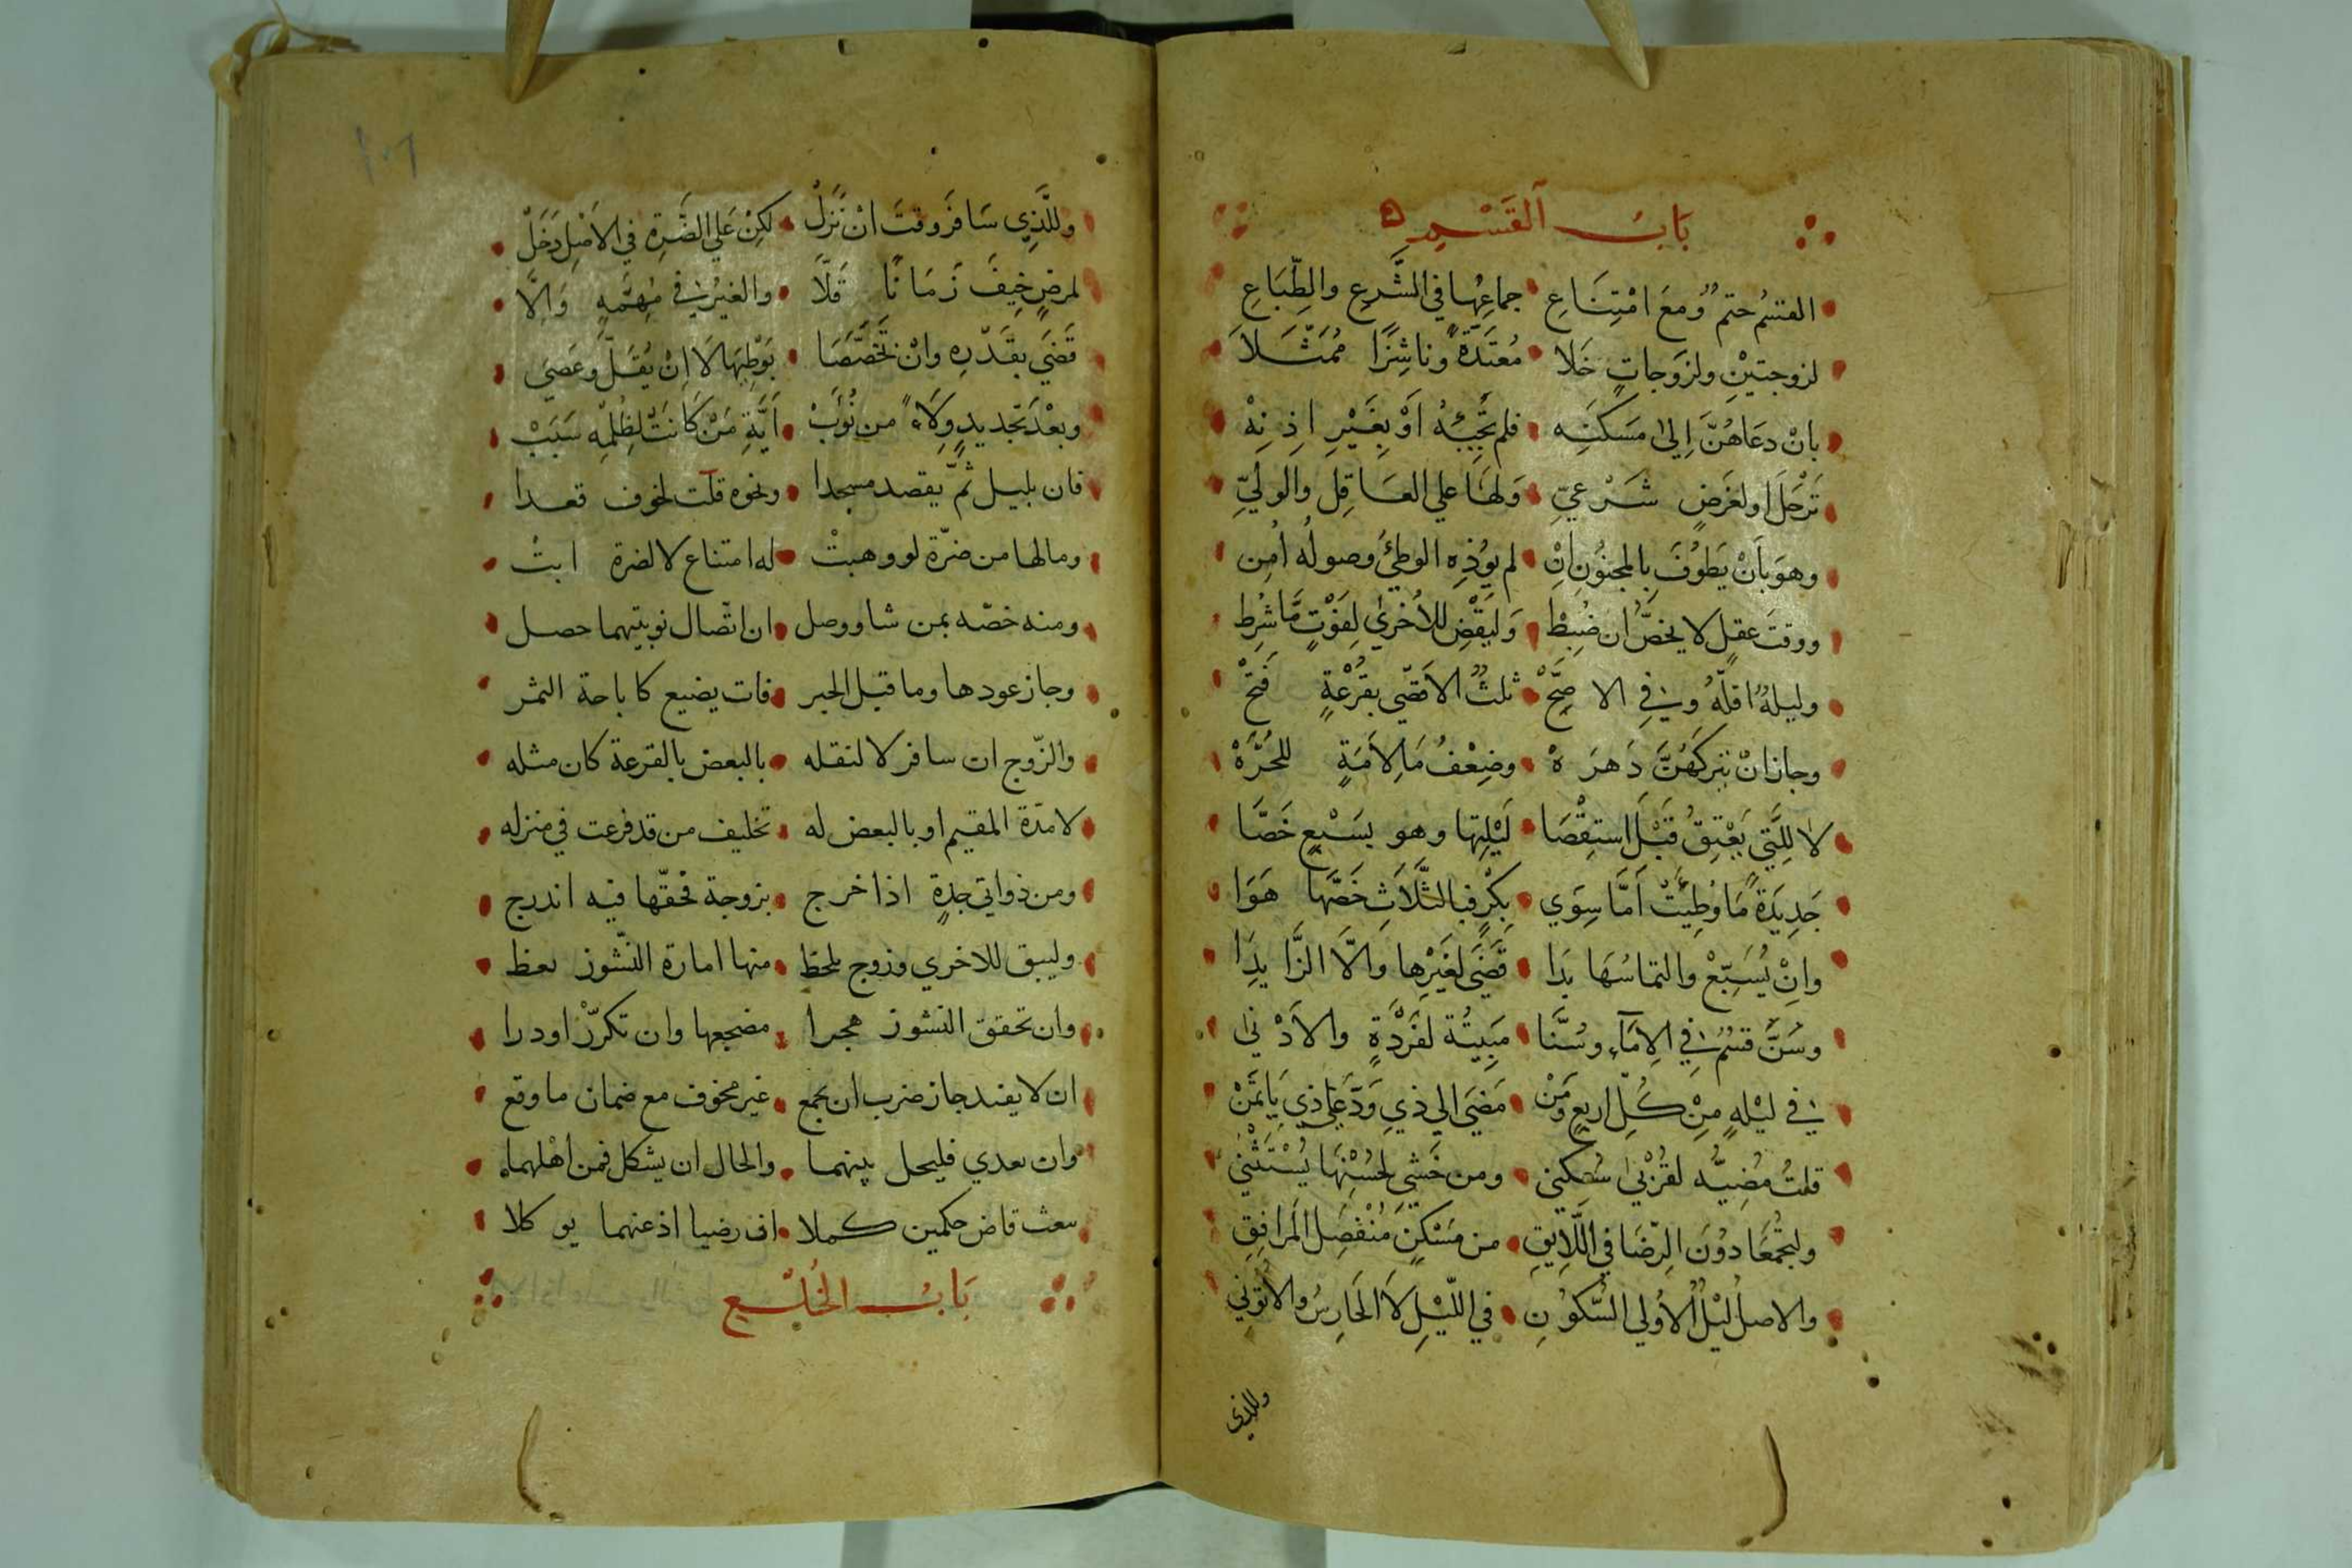 بَابُ القَسْمِ
القسْمُ حتمٌ ومَعَ امْتِنَاعِ جماعِهَا في الشَّرعِ والطِّبَاعِ
لزوجتيْنِ ولزَوجَاتٍ خَلا مُعتَدَّةً وناشِزًا مُمَثَّلاَ
بانْ دعَاهُنَّ اِلىٰ مَسكنِه فلم تُجِبْهُ اَوْ بِغَيْرِ اِذنِهْ
تَرْحَل اولغَرَضٍ شَرْعيِّ وَلهَا علي العَاقِل والوليِّ
وهوَ بأنْ يَطوُفَ بالمجنُونِ اِنْ لم يوُذِهِ الوطئُ وصولُه اُمِن
ووقتَ عقلٍ لا يخصُّ ان ضُبِطْ وَليَقْضِ للاُخريٰ لِفَوْتٍ مَّا شُرِط
وليلةٌ اقلّهُ وفي الاصِحّْ ثلثٌ الاَقصي بقُرْعةٍ فَتحْ
وجاز انْ يَتركَهُنَّ دَهرَهْ وضِعْفُ مَا لِاَمَةٍ للحُرَّهْ
لا للِّتي يَعْتِقُ قَبْلَ استِقْصَا لَيْلِتها وهو بسَبْعٍ خَصَّا
جَدِيَدةً مَا وُطِيَتْ اَمَّا سِوَي بِكْرٍ فبالثَّلاَثِ خَصَّها هَوَا
وانْ يُسَبِّعْ والتماسُهَا بَدَا قَضَي لغَيْرِها والَّا الزَّايِدَا
وسَنَّ قسْمٌ في الاِمَآءِ وسُنَّا مَبِيتُة لفَرْدَةٍ والاَدْنىٰ
في ليْلهٍ مِنْ كُلِّ اربعٍ وَمَنْ مَضَيَ الي ذي وَدَّعَا ذي يَاتَمَنْ
قلتُ مُضِيُّه لقُرْبيٰ سُكني ومن خَشي لحُسْنِهَا يُسْتَثْنيٰ
وليجْمَعَا دوُنَ الرِّضَا في اللَّايِقِ من مَسْكنٍ مُنْفَصِل المَرافِقِ
والاصل ليْلٌ الاُولي السُّكوُنِ في اللّيْلِ لاَ الحَارِسُ والاتُونِي
وللذي
١٠٦
وللَّذِي سَافَرَ وقتَ انْ نَزَلْ لكِنْ عَلي الضَّرةِ في الاَصْلِ دَخَلْ
لمرضٍ خِيفَ زَمَانًا قَلاَّ والغيْرُ في مُهِمَّهٍ وَاِلَّا
قَضَي بقَدْرِه وانْ تخَصَّصَا بَوْطِيَها لَا اِنْ يُقَلّ وعَصَي
وبعْدَ تَجديدٍ وِلَاءً من نُوَبْ اَيَّةِ مَنْ كَانَتْ لِظُلمِه سَبَبْ
فان بليل ثمّ يقصد مسجدا ونحوه قلت لخوف قعدا
ومالها من ضرّة لو وهبتْ له امتناع لا لضرة ابتْ
ومنه خصّه بمن شا ووصل ان اتّصال نوبتيهما حصل
وجاز عودها وما قبل الخبر فات يضيع كاباحة الثمر
والزّوج ان سافر لا لنقله بالبعض بالقرعة كان مثله
لا مدّة المقيم او بالبعض له تخليف من قد قرعت في منزله
ومن ذواتي جدةٍ اذا خرج بزوجة فحقّها فيه اندرج
وليبق للاخري وزوج ملحظ منها امارة النّشوز يعظ
وان تحقق النشوز هجرا مضجعها وان تكرّر او درا
ان لا يفند جاز ضرب ان نجمع غير مخوف مع ضمان ما وقع
وان تعدي فليحل بينهما والحال ان يشكل فمن اهْلهماه
يبعث قاض حكمين كملا ان رضيا اذ عنهما يوكلا
بَابُ الخُلْعِ